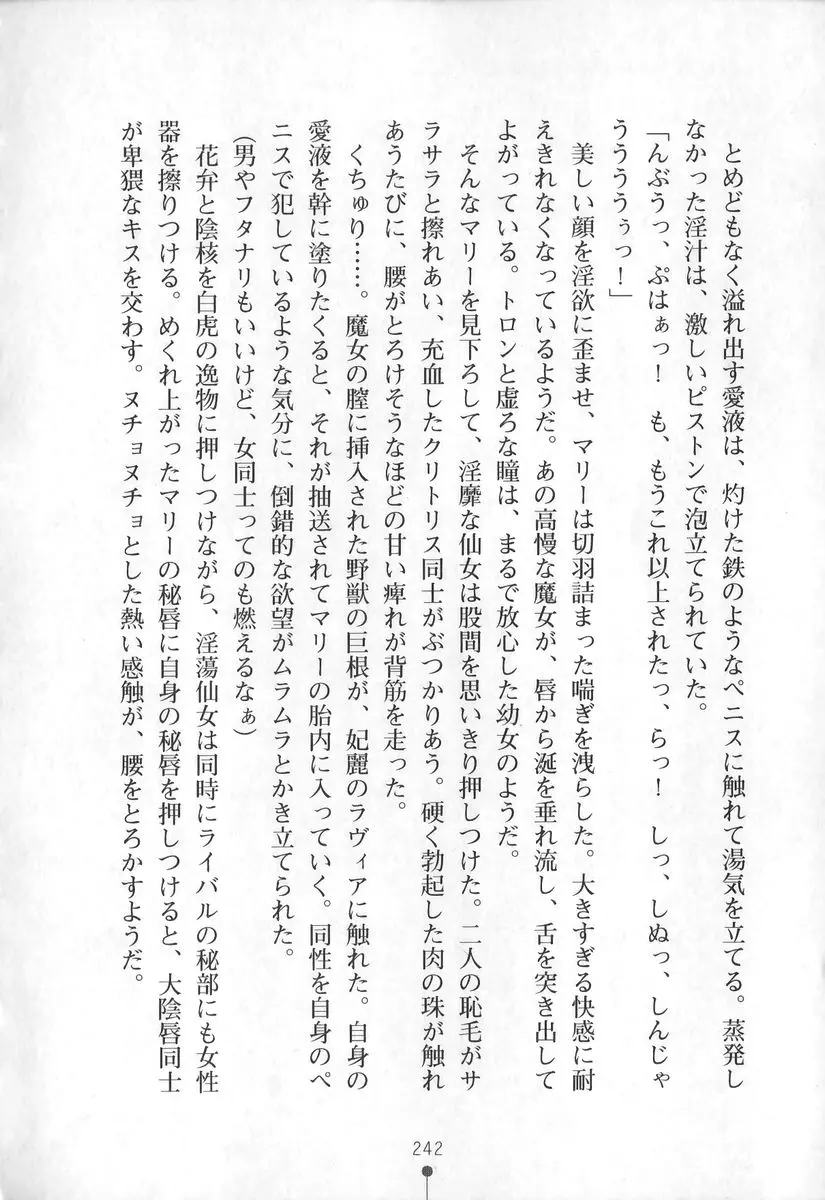 とめどもなく溢れ出す愛液は、灼けた鉄のようなペニスに触れて湯気を立てる。蒸発し
なかった淫汁は、激しいピストンで泡立てられていた。
「んぶうっ、ぷはぁっ！　も、もうこれ以上されたっ、らっ！　しっ、しぬっ、しんじゃ
うううぅっ！」
美しい顔を淫欲に歪ませ、マリーは切羽詰まった喘ぎを洩らした。大きすぎる快感に耐
えきれなくなっているようだ。あの高慢な魔女が、唇から涎を垂れ流し、舌を突き出して
よがっている。トロンと虚ろな瞳は、まるで放心した幼女のようだ。
そんなマリーを見下ろして、淫靡な仙女は股間を思いきり押しつけた。二人の恥毛がサ
ラサラと擦れあい、充血したクリトリス同士がぶつかりあう。硬く勃起した肉の珠が触れ
あうたびに、腰がとろけそうなほどの甘い痺れが背筋を走った。
くちゅり……。魔女の膣に挿入された野獣の巨根が、妃麗のラヴィアに触れた。自身の
愛液を幹に塗りたくると、それが抽送されてマリーの胎内に入っていく。同性を自身のペ
ニスで犯しているような気分に、倒錯的な欲望がムラムラとかき立てられた。
（男やフタナリもいいけど、女同士ってのも燃えるなぁ）
花弁と陰核を白虎の逸物に押しつけながら、淫蕩仙女は同時にライバルの秘部にも女性
器を擦りつける。めくれ上がったマリーの秘唇に自身の秘唇を押しつけると、大陰唇同士
が卑猥なキスを交わす。ヌチョヌチョとした熱い感触が、腰をとろかすようだ。
242